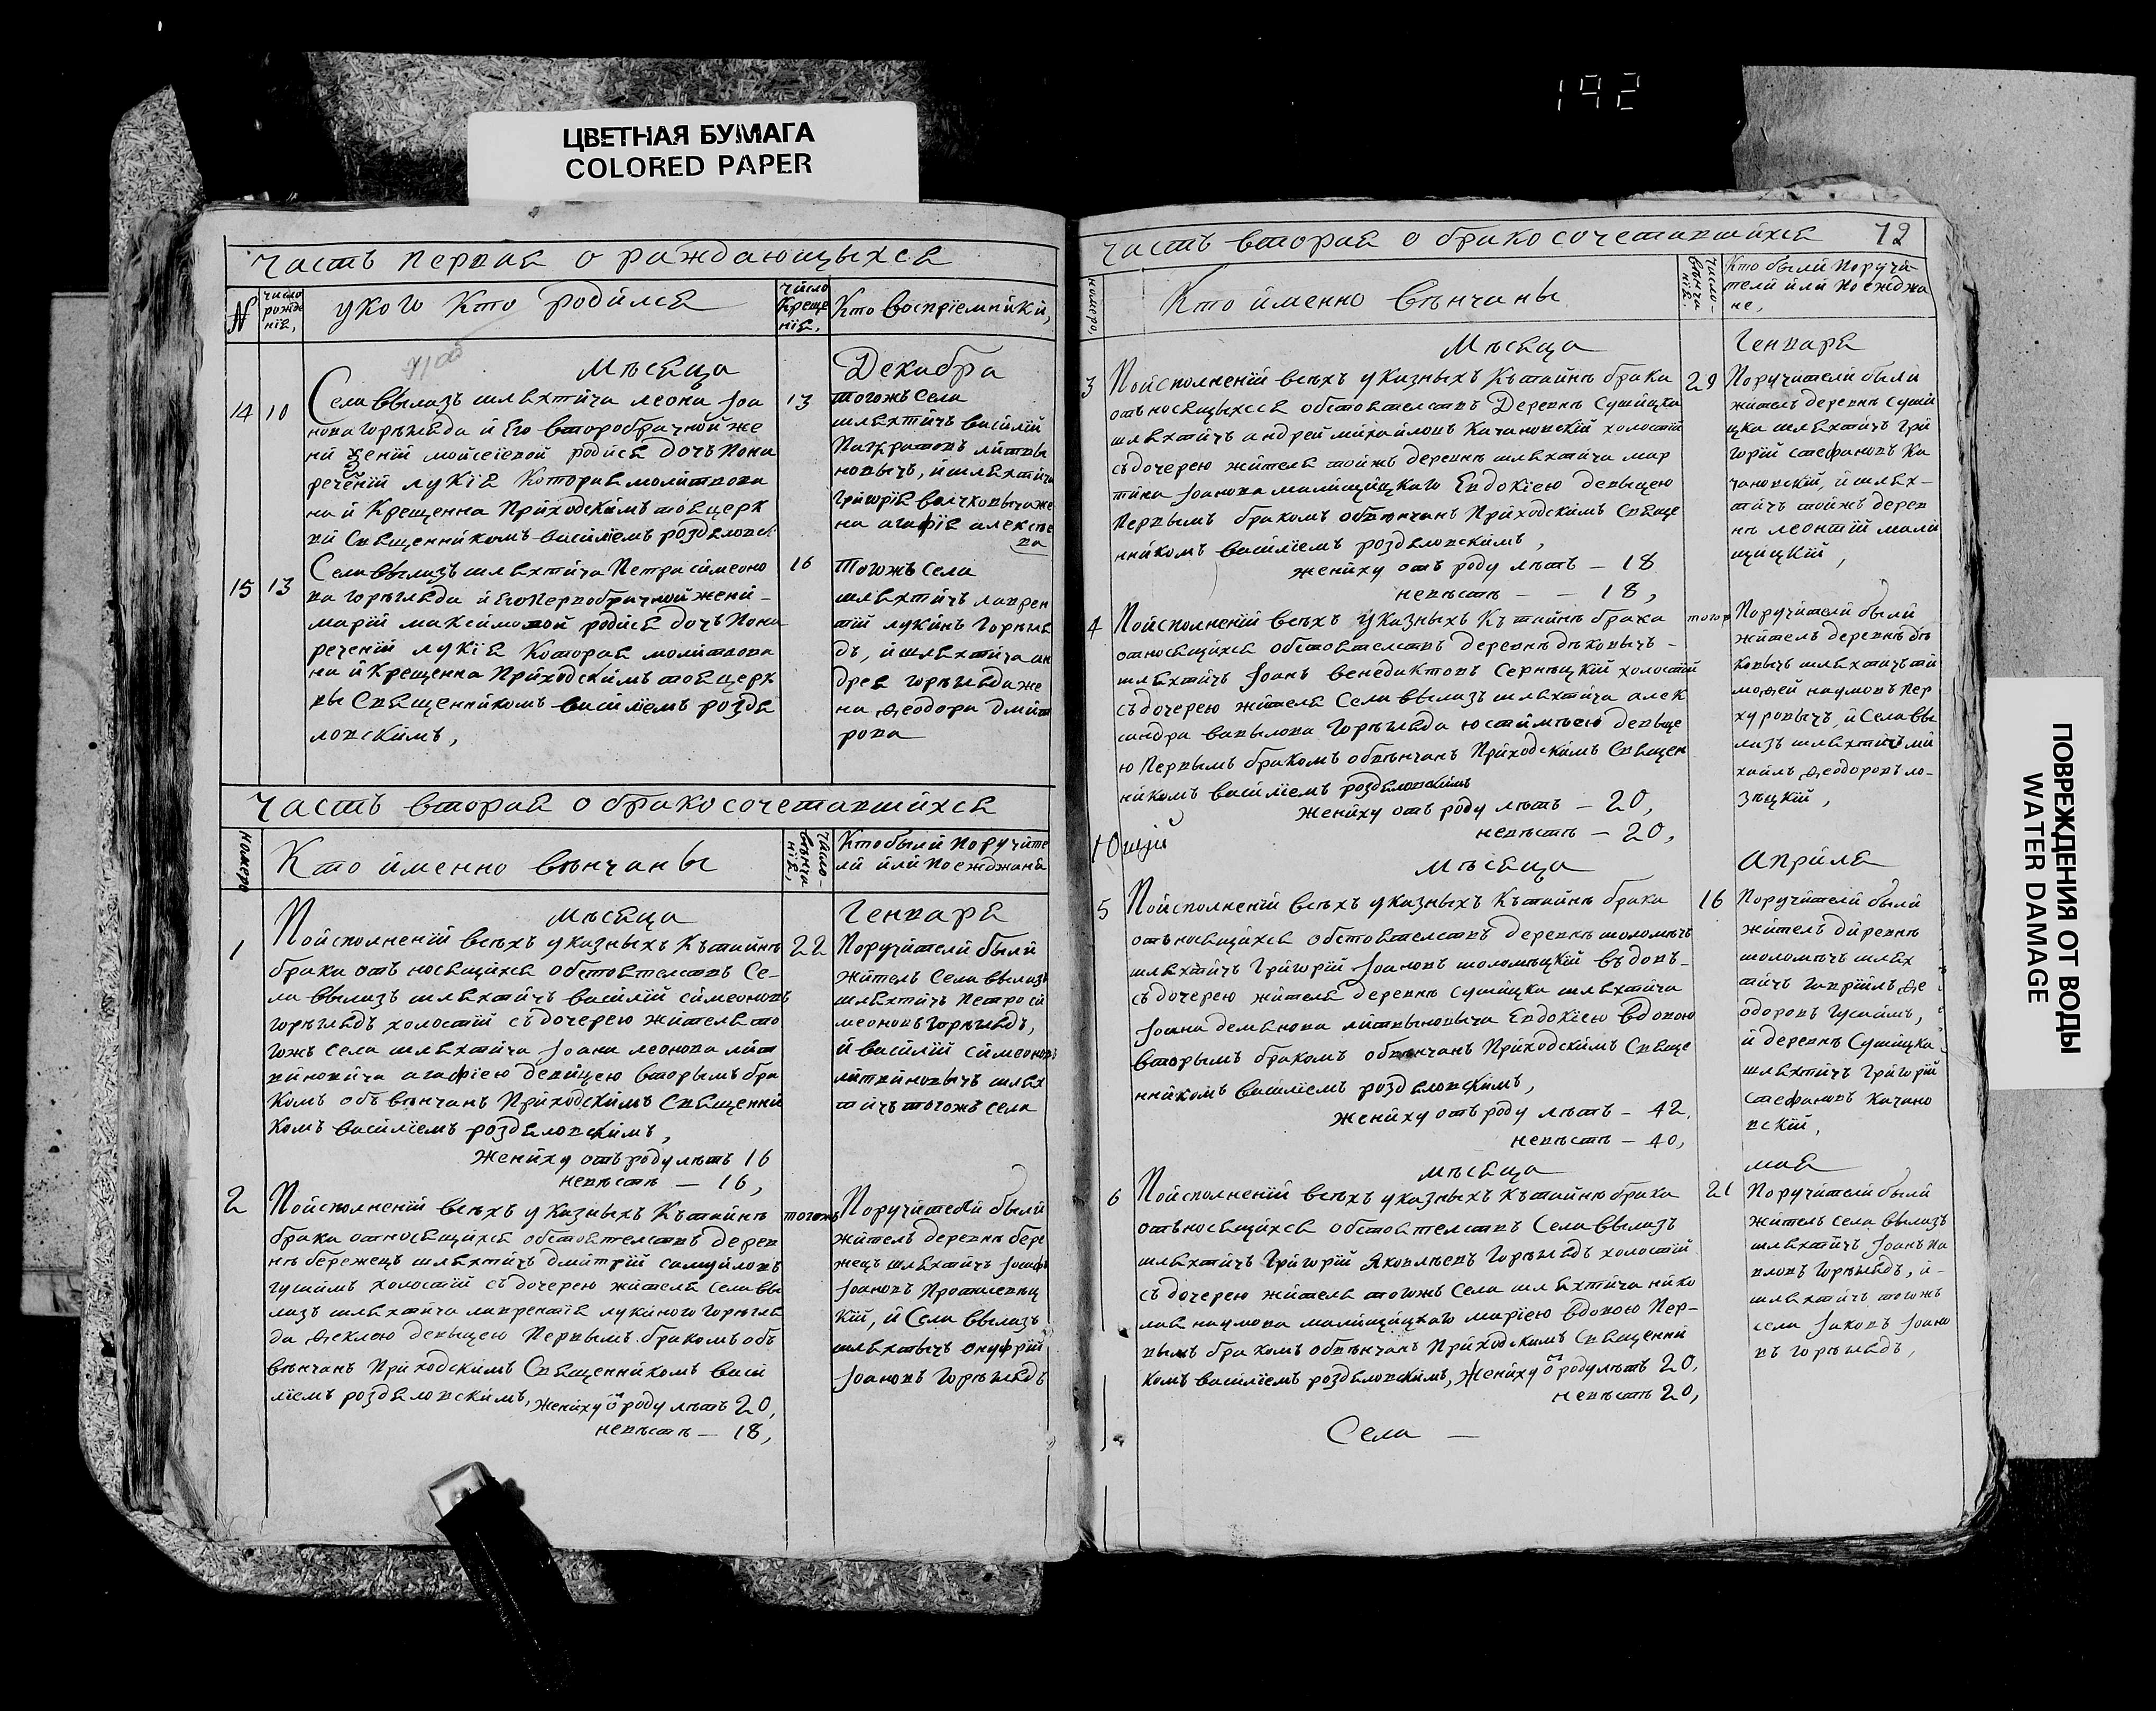 ЦВЕТНАЯ БУМАГА
COLORED PAPER
192
ПОВРЕЖДЕНИЯ ОТ ВОДЫ
WATER DAMAGE
Часть первая о раждающыхся
N
число рожде нія,
у кого кто родился
число креще нія,
Кто воспріемники,
Мѣсяца Декабра
14 10
Села Вылазъ шляхтича Леона Іоа
нова Горѣгляда и Его второбрачной же
ни Ксеніи Мойсеіевой родися дочъ пона
реченій Лукія Которая молитвова
на и Крещенна Приходскимъ тоя церк
ви Священникомъ Василіемъ Роздяловск:
13
тогожъ Села
шляхтичъ Василій
Панкратовъ Литвы
новычъ, и шляхтича
Григорія Величковыча же
на Агафія Алексѣе
ва
15 13
Села Вылазъ шляхтича Петра Симеоно
ва Горѣгляда и Его Первобрачной жени
Маріи Максимовой родися дочъ Пона
реченій Лукія Которая молитвова
на и Крещенна Приходскимъ тоя церк
вы Священникомъ Василіемъ Роздя
ловскимъ,
16
Тогожъ Села
шляхтичъ Лаврен
тій Лукинъ Горѣгля
дъ, и шляхтича Ан
дрея Горѣгляда же
на Ѳеодора Дмит
рова
Часть вторая о бракосочетавшихся
номеръ
Кто именно вѣнчаны
число вѣнча нія,
Кто были Поручите
ли или поежджаня
Мѣсяца Генваря
1
Поисполненій всѣхъ указныхъ Къ тайнѣ
брака отъносящихся обстоятелствъ Се-
ла Вылазъ шляхтичъ Василій Симеоновъ
Горѣглядъ холостій съ дочерею жителя то
гожъ Села шляхтича Іоана Леонова Лит
виновича Агафіею девицею вторымъ бра
комъ объвѣнчанъ Приходскимъ Священни
комъ Василіемъ Роздяловскимъ,
жениху отъ роду лѣтъ 16
невѣстѣ — 16,
22
Поручители были
житель Села Вылазъ
шляхтичъ Петро Си
меоновъ Горѣглядъ,
и Василій Симеоновъ
Литвиновычъ шлях
тичъ тогожъ села
2
Поисполненій всѣхъ указныхъ Къ тайнѣ
брака относящихся обстоятелствъ дерев
нѣ Бережецъ шляхтичъ Дмитрій Самуйловъ
Гушимъ холостій съ дочерею жителя Села Вы
лазъ шляхтича Лаврентія Лукиного Горѣгля
да Ѳеклою девыцею Первымъ бракомъ объ
вѣнчанъ Приходскимъ Священникомъ Васи
ліемъ Роздяловскимъ, жениху отъ роду лѣтъ 20,
невѣстѣ — 18,
тогожъ
Поручители были
житель деревнѣ Бере
жецъ шляхтичъ Іосифъ
Іоановъ
кій, и Села Вылазъ
шляхтычъ Онуфрій
Іоановъ Горѣглядъ
Часть вторая о бракосочетавшихся
72
номеро,
Кто именно вѣнчаны
число вѣнча нія,
Кто были Поручи-
тели или поежджа
не,
Мѣсяца Генваря
3
Поисполненій всѣхъ указныхъ Къ тайнѣ брака
отъносящыхся обстоятелствъ Деревнѣ Сушицка
шляхтичъ Андрей Михайловъ Качановскій холостій
съ дочерею жителя тойжъ деревнѣ шляхтича Мар
тина Іоанова Малищицкаго Евдокіею девыцею
Первымъ бракомъ обвѣнчанъ Приходскимъ Свяще
нникомъ Василіемъ Роздяловскимъ,
жениху отъ роду лѣтъ — 18
невѣстѣ — — 18,
29
Поручители были
житель деревнѣ Суши
цка шляхтичъ Гри
горій Стефановъ Ка
чановскій, и шлях-
тичъ тойжъ дерев
нѣ Леонтій Мали
щицкій,
4
Поисполненій всѣхъ указныхъ Къ тайнѣ брака
относящихся обстоятелствъ деревнѣ Дѣковычъ -
шляхтичъ Іоанъ Венедиктовъ Сернѣцкій холостій
съ дочерею жителя Села Вылазъ шляхтича Алек
сандра Вавылова Горѣгляда Юстимѣею девыце
ю Первымъ бракомъ обвѣнчанъ Приходскимъ Священ
никомъ Василіемъ Роздяловскимъ
жениху отъ роду лѣтъ — 20,
невѣстѣ — 20,
тогож
Поручители были
житель деревнѣ Дѣ
ковычъ шляхтичъ Ти
моѳей Наумовъ Пер
хуровычъ, и Села Вы
лазъ шляхтичъ Ми
хаилъ Ѳеодоровъ Ло-
зѣцкій,
Мѣсяца Априля
5
Поисполненій всѣхъ указныхъ Къ тайнѣ брака
отъносящихся обстоятелствъ деревнѣ Шоломѣчъ
шляхтичъ Григорій Іоановъ Шоломѣцкій вдовъ-
съ дочерею жителя деревнѣ Сушицка шляхтича
Іоана Демянова Литвыновыча Евдокіею вдовою
вторымъ бракомъ обвѣнчанъ Приходскимъ Свяще
нникомъ Василіемъ Роздяловскимъ,
жениху отъ роду лѣтъ — 42,
невѣстѣ — 40,
16
Поручители были
житель диревнѣ
Шоломѣчъ шлях
тичъ Гавриилъ Ѳе
одоровъ Гусаимъ,
и деревнѣ Сушицка
шляхтичъ Григорій
Стефановъ Качано
вскій,
Мѣсяца Мая
6
Поисполненій всѣхъ указныхъ Къ тайнѣ брака
отъносящихся обстоятелствъ Села Вылазъ
шляхтичъ Григорій Яковлѣевъ Горѣглядъ холостій
съ дочерею жителя тогожъ Села шляхтича Нико
лая Наумова Малищицкаго Маріею вдовою Пер-
вымъ бракомъ обвѣнчанъ Приходскимъ Священни
комъ Василіемъ Роздяловскимъ, жениху отъ роду лѣтъ 20,
невѣстѣ 20,
21
Поручители были
житель села Вылазъ
шляхтичъ Іоанъ Па
вловъ Горѣглядъ, и-
шляхтичъ тогожъ
села Іаковъ Іоано
въ Горѣглядъ,
Села —